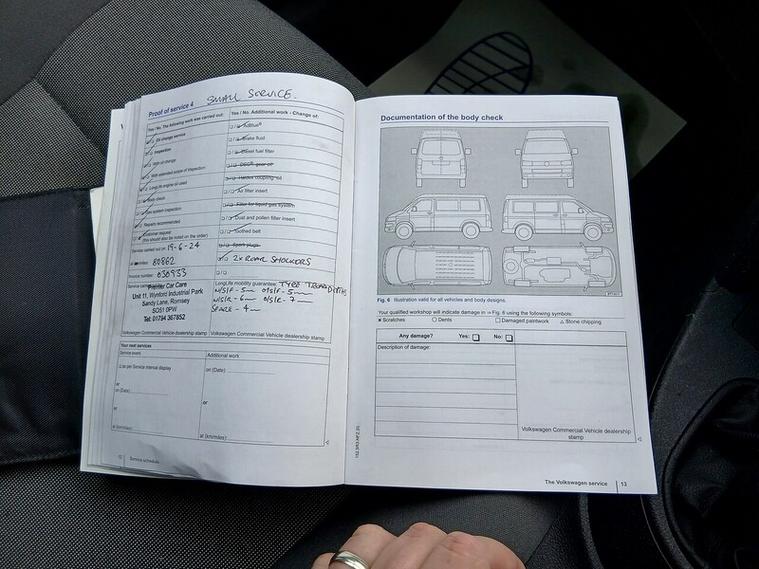 Proof of service 4 SMALL SERVICE.
Yes / No: The following work was carried out:
Oil change service
Inspection
With oil change
With extended scope of inspection
LongLife engine oil used
Body check
Gas system inspection
Repairs recommended
Customer request
(this should also be noted on the order)
Service carried out on: 19-6-24
80862
Invoice number: 030933
Premier Car Care
Unit 11, Wynford Industrial Park
Sandy Lane, Romsey
SO51 0PW
Tel: 01794 367852
Volkswagen Commercial Vehicle dealership stamp
Yes / No: Additional work - Change of:
AdBlue®
Brake fluid
Diesel fuel filter
DSG® gear oil
Haldex coupling oil
Air filter insert
Filter for liquid gas system
Dust and pollen filter insert
Toothed belt
Spark plugs
2x REAR SHOCKERS
LongLife mobility guarantee: TYRE TREAD DEPTHS
N/S/F - 5mm O/S/F - 5mm
N/S/R - 6mm O/S/R - 7
SPARE - 4
Volkswagen Commercial Vehicle dealership stamp
Your next services
Service event
as per Service interval display
or
on (Date)
or
at (km/miles)
Additional work
on (Date)
or
at (km/miles)
Service schedule
Documentation of the body check
Fig. 6 Illustration valid for all vehicles and body designs.
Your qualified workshop will indicate damage in ⇒ Fig. 6 using the following symbols:
× Scratches ○ Dents □ Damaged paintwork △ Stone chipping
Any damage? Yes: No:
Description of damage:
Volkswagen Commercial Vehicle dealership
stamp
The Volkswagen service 13